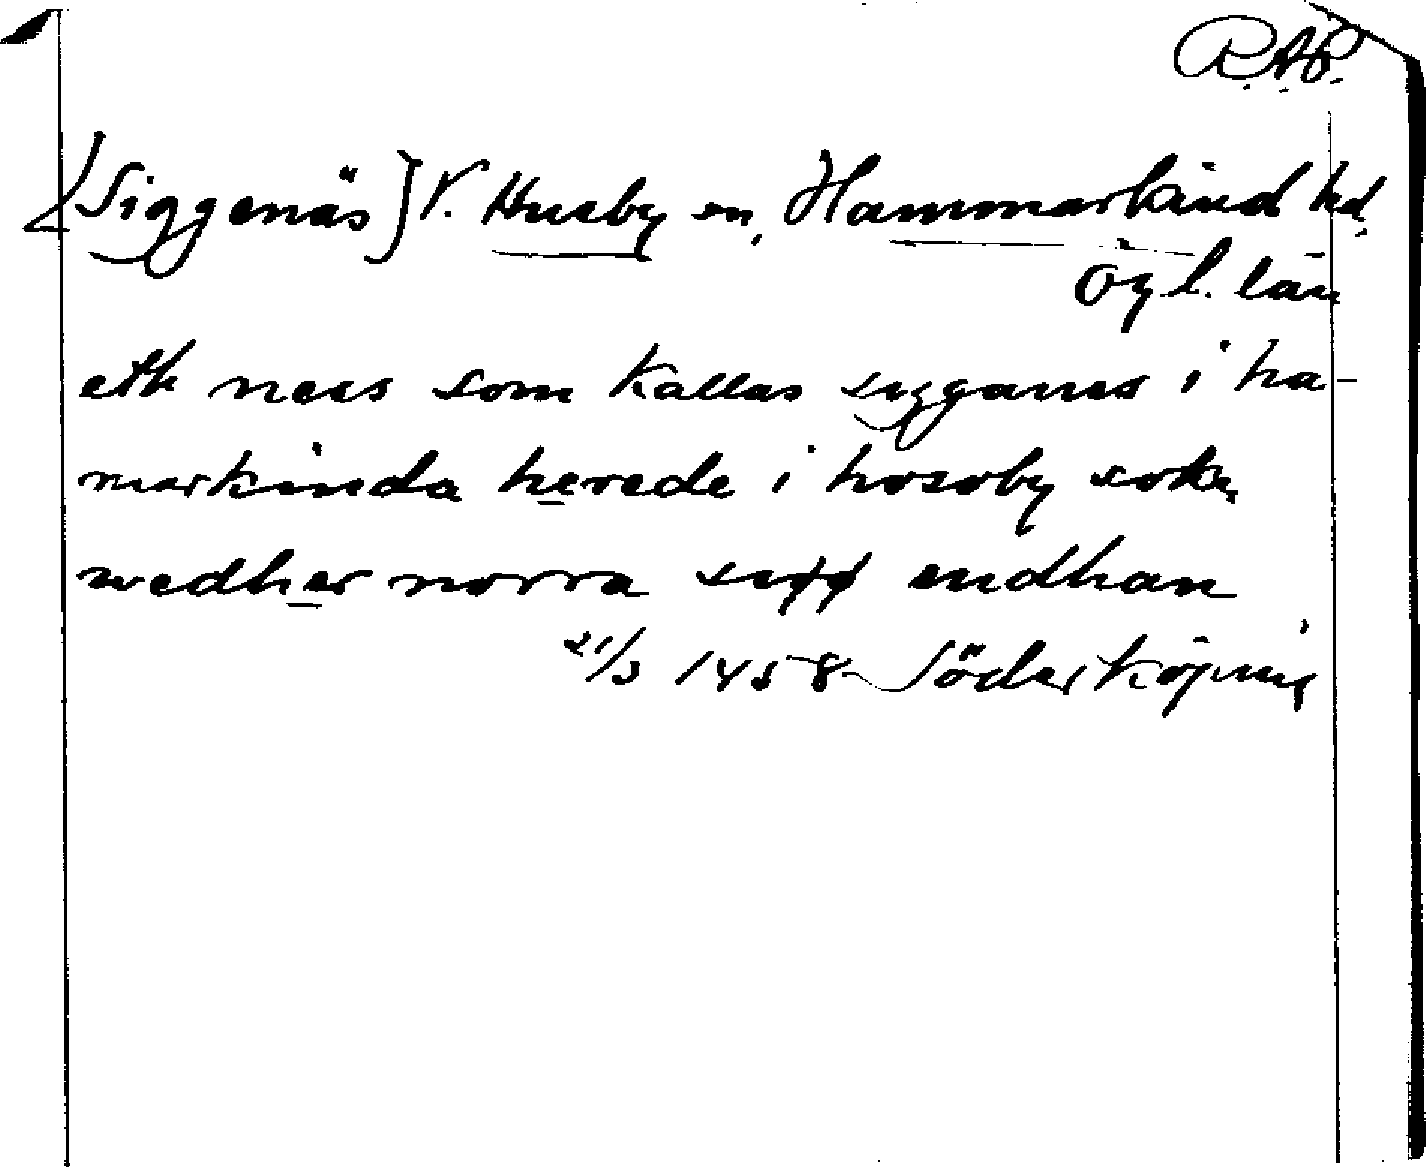 R.A.P.
[Siggenäs] V. Husby sn, Hammarkind hd,
Ög l. län
eth ness som kallas sigganes i ha-
markinda herede i hosoby sokn
wedher norra siøø endhan
21/3 1458 Söderköping